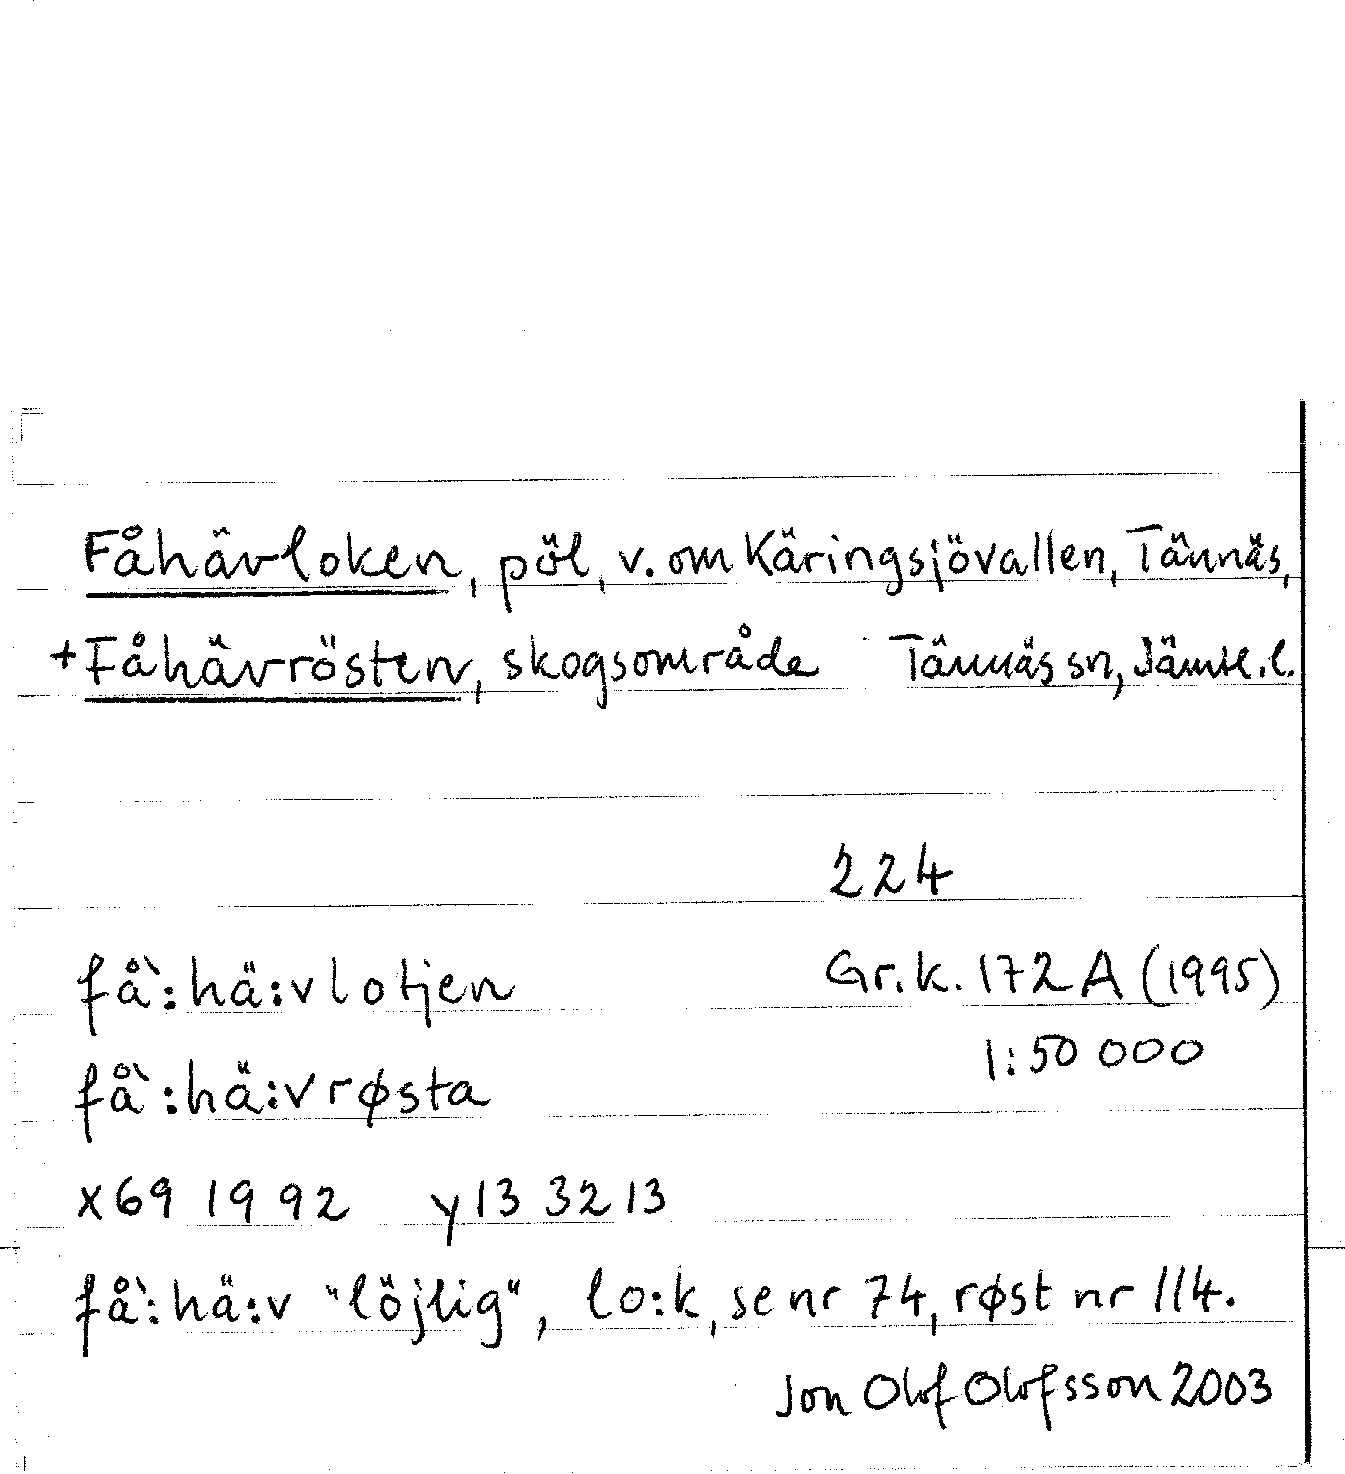 Fåhävloken, pöl, v. om Käringsjövallen, Tännäs,
+Fåhävrösten, skogsområde Tännäs sn, Jämtl. l.
224
få`:hä:vlotjen Gr.k. 172 A (1995)
1:50 000
få`:hä:vrøsta
x69 19 92 y13 32 13
få`:hä:v "löjlig", lo:k, se nr 74, røst nr 114.
Jon Olof Olofsson 2003